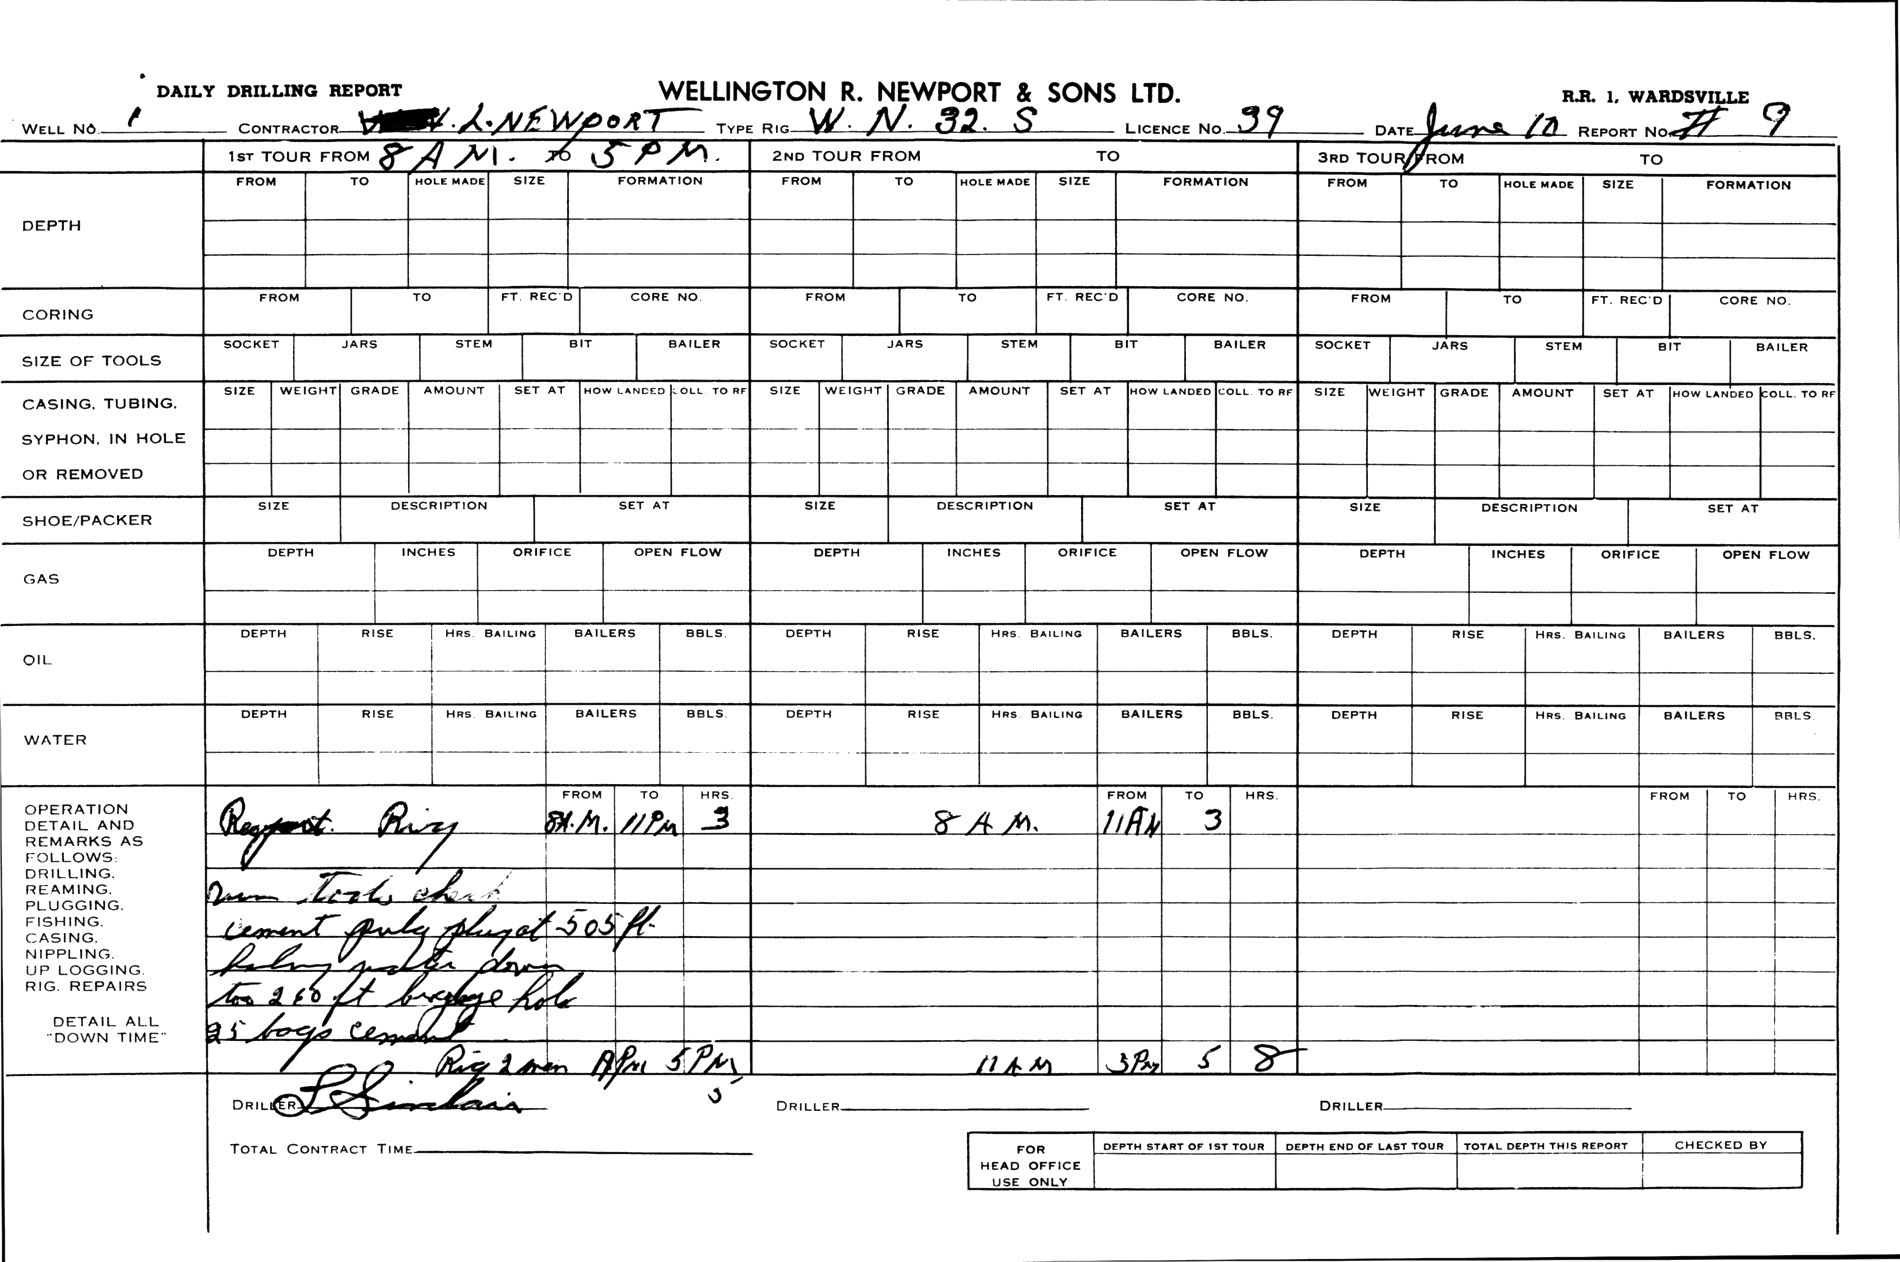 DAILY DRILLING REPORT WELLINGTON R. NEWPORT & SONS LTD. R.R. 1, WARDSVILLE
WELL NO. 1 CONTRACTOR L. NEWPORT TYPE RIG W. N. 32. S LICENCE NO. 39 DATE June 10 REPORT NO. # 9
1ST TOUR FROM 8 A M. TO 5 P M. 2ND TOUR FROM TO 3RD TOUR FROM TO
DEPTH
FROM TO HOLE MADE SIZE FORMATION FROM TO HOLE MADE SIZE FORMATION FROM TO HOLE MADE SIZE FORMATION
CORING
FROM TO FT. REC'D CORE NO. FROM TO FT. REC'D CORE NO. FROM TO FT. REC'D CORE NO.
SIZE OF TOOLS
SOCKET JARS STEM BIT BAILER SOCKET JARS STEM BIT BAILER SOCKET JARS STEM BIT BAILER
CASING, TUBING,
SYPHON, IN HOLE
OR REMOVED
SIZE WEIGHT GRADE AMOUNT SET AT HOW LANDED COLL. TO RF SIZE WEIGHT GRADE AMOUNT SET AT HOW LANDED COLL. TO RF SIZE WEIGHT GRADE AMOUNT SET AT HOW LANDED COLL. TO RF
SHOE/PACKER
SIZE DESCRIPTION SET AT SIZE DESCRIPTION SET AT SIZE DESCRIPTION SET AT
GAS
DEPTH INCHES ORIFICE OPEN FLOW DEPTH INCHES ORIFICE OPEN FLOW DEPTH INCHES ORIFICE OPEN FLOW
OIL
DEPTH RISE HRS. BAILING BAILERS BBLS. DEPTH RISE HRS. BAILING BAILERS BBLS. DEPTH RISE HRS. BAILING BAILERS BBLS.
WATER
DEPTH RISE HRS. BAILING BAILERS BBLS. DEPTH RISE HRS. BAILING BAILERS BBLS. DEPTH RISE HRS. BAILING BAILERS BBLS.
OPERATION
DETAIL AND
REMARKS AS
FOLLOWS:
DRILLING.
REAMING.
PLUGGING.
FISHING.
CASING.
NIPPLING.
UP LOGGING.
RIG. REPAIRS
DETAIL ALL
"DOWN TIME"
FROM TO HRS. FROM TO HRS. FROM TO HRS.
Rig 8A.M. 11PM 3 8 A M. 11AM 3
run Tools check
cement plug at 505 ft.
water down
too 260 ft hole
25 bags cement
Rig 2 men PM 5PM 11 A M 3PM 5 8
5
DRILLER L Sinclair DRILLER DRILLER
TOTAL CONTRACT TIME
FOR
HEAD OFFICE
USE ONLY
DEPTH START OF 1ST TOUR DEPTH END OF LAST TOUR TOTAL DEPTH THIS REPORT CHECKED BY